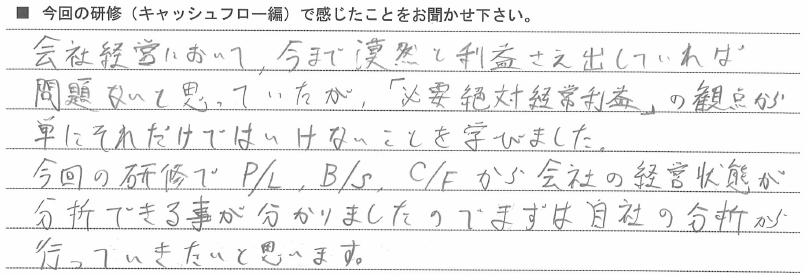 ■ 今回の研修（キャッシュフロー編）で感じたことをお聞かせ下さい。
会社経営において、今まで漠然と利益さえ出していれば
問題ないと思っていたが、「必要絶対経常利益」の観点から
単にそれだけではいけないことを学びました。
今回の研修で P/L, B/S, C/F から会社の経営状態が
分析できる事が分かりましたのでまずは自社の分析から
行っていきたいと思います。